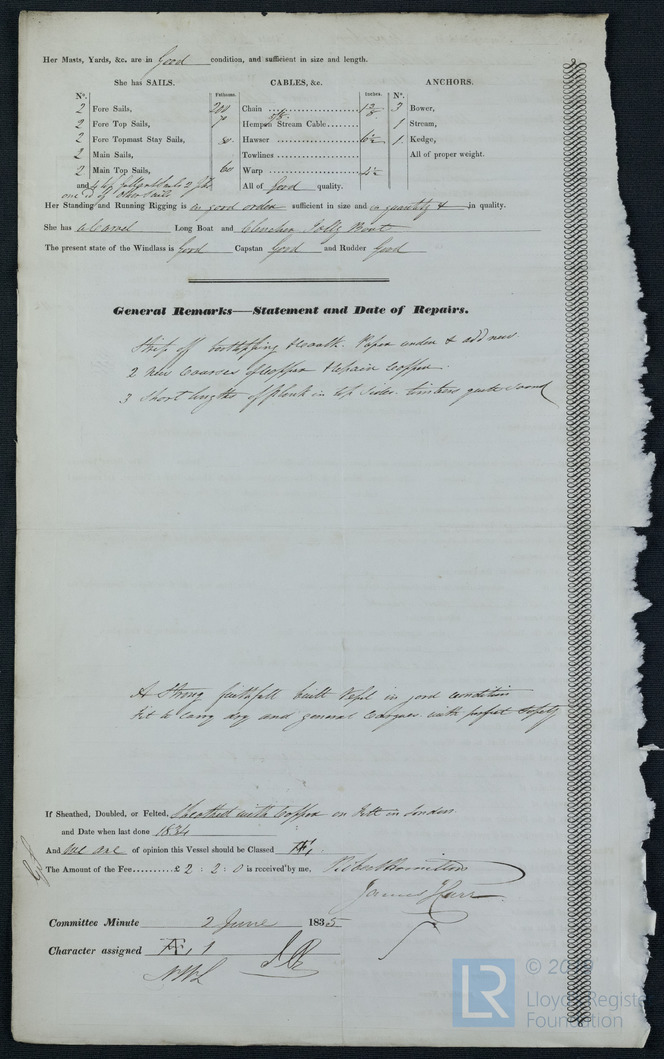 Her Masts, Yards, &c. are in Good condition, and sufficient in size and length.
She has SAILS.
CABLES, &c.
ANCHORS.
N°. Fathoms. Inches. N°.
2 Fore Sails, 200 Chain 3 Bower,
2 Fore Top Sails, Hempen Stream Cable 1 Stream,
2 Fore Topmast Stay Sails, 80 Hawser 6½ 1 Kedge,
2 Main Sails, Towlines All of proper weight.
2 Main Top Sails, 60 Warp 4½
and All of Good quality.
one of other Sails
Her Standing and Running Rigging is in good order sufficient in size and in quantity & in quality.
She has a Carvel Long Boat and Clincher Jolly Boat
The present state of the Windlass is Good Capstan Good and Rudder Good
General Remarks—Statement and Date of Repairs.
Strip off Paper under & add new
2 new Courses of Copper & Repair Copper
3 Short lengths of plank in top sides. timbers quite sound
A Strong faithfull built Vessel in good condition
fit to carry dry and general Cargoes with perfect Safety
If Sheathed, Doubled, or Felted, Sheathed with Copper on Felt in London
and Date when last done 1834
And We are of opinion this Vessel should be Classed Æ1
The Amount of the Fee £ 2 : 2 : 0 is received by me,
James
Committee Minute 2 June 1835
Character assigned Æ 1
LR
Lloyd's Register
Foundation